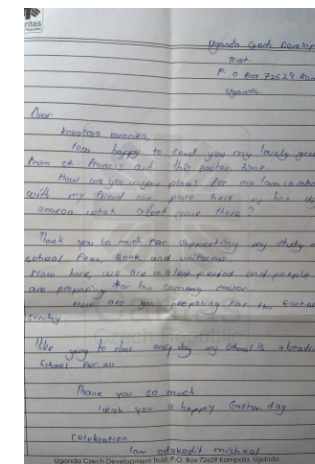 Uganda Czech Develop
Trust
P. O Box 72629 Kam
Uganda.
Dear
I am happy to send you my lovely gree
From St. Francis and this easter time.
How are you in your place? For me I am in scho
with my friend our place here is hot dry
season what about your there?
Thank you so much for supporting my study
school fees, Book and uniform.
Now here, we are in a lent period and people
are preparing for the coming easter.
How are you preparing for the Easter
Sunday.
I like going to class everyday my school is a boardin
school for all
Thank you so much
wish you a happy Easter day
Celebration
I am
Czech Republic
Uganda Czech Development Trust, P.O. Box 72629 Kampala, Uganda